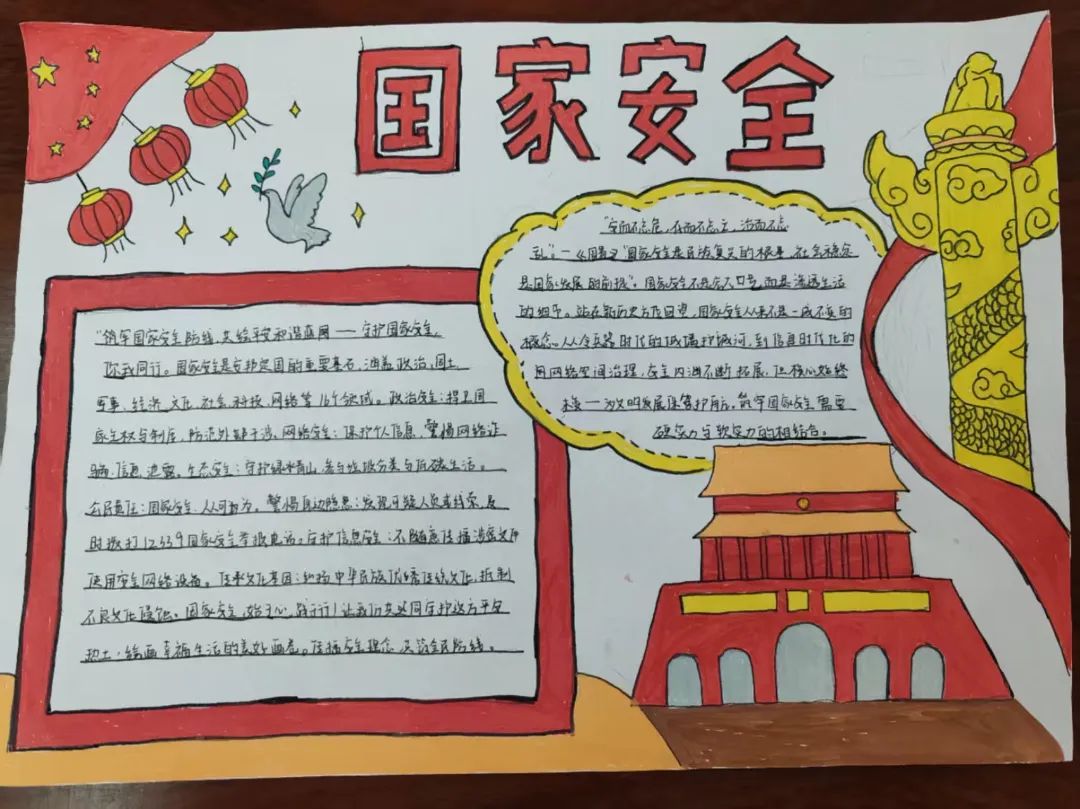 国家安全
"筑牢国家安全防线,共绘平安和谐蓝图——守护国家安全,
你我同行。国家安全是安邦定国的重要基石,涵盖政治,国土
军事、经济、文化、社会、科技、网络等16个领域。政治安全:捍卫国
家主权与制度,防范外部干涉,网络安全:保护个人信息,警惕网络诈
骗、信息泄露。生态安全:守护绿水青山,参与垃圾分类与低碳生活。
公民责任:国家安全,人人可为。警惕身边隐患:发现可疑人员或线索,及
时拨打12339国家安全举报电话。守护信息安全:不随意传播涉密文件
使用安全网络设备。传承文化基因:弘扬中华民族优秀传统文化,抵制
不良文化侵蚀。国家安全,始于心,践于行!让我们共同守护这方平安
热土,绘画幸福生活的美好画卷。传播安全理念 全民防线。
"安而不忘危,存而不忘亡,治而不忘
乱",—《周易》"国家安全是民族复兴的根基,社会稳定
是国家发展的前提"。国家安全不是空不口号,而是渗透生活
的细节。站在新历史方位回望,国家安全从来不是一成不变的
概念。从冷兵器时代的城墙护城河,到信息时代化的
用网络空间治理,安全内涵不断拓展,但核心始终
——为文明发展保驾护航。筑牢国家安全需要
硬实力与软实力的相结合。